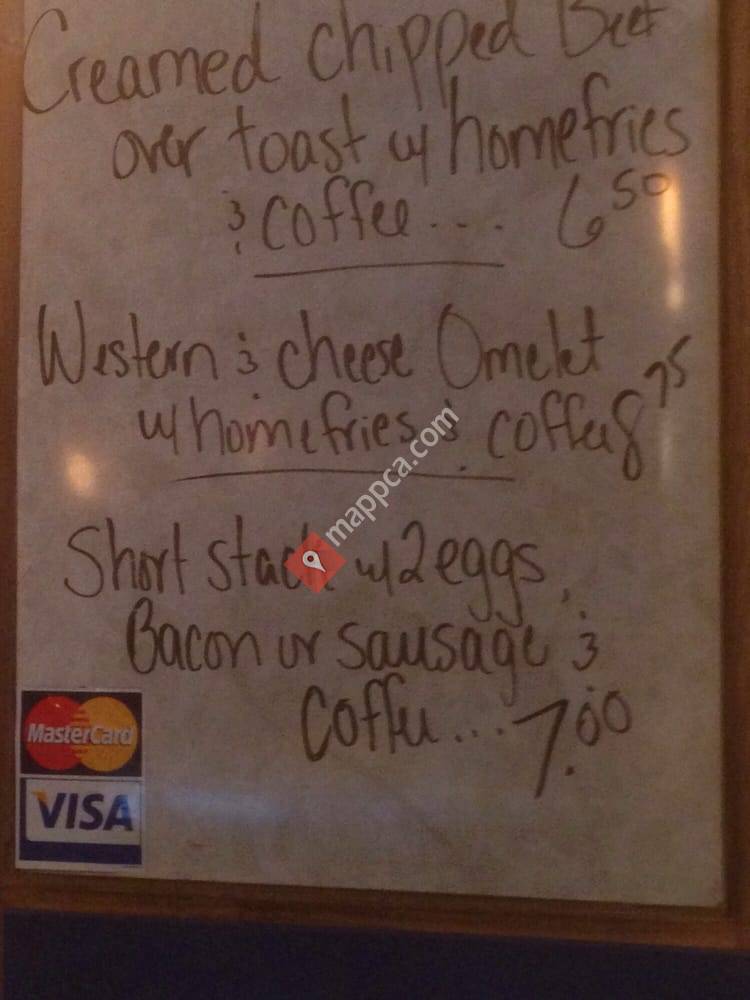 Creamed chipped Beef
over toast w/ homefries
& coffee.... 6 50
Western & cheese Omelet
w/ homefries & coffee 8 75
mappca.com
Short stack w/ 2 eggs,
Bacon or sausage &
Coffee... 7.00
MasterCard
VISA